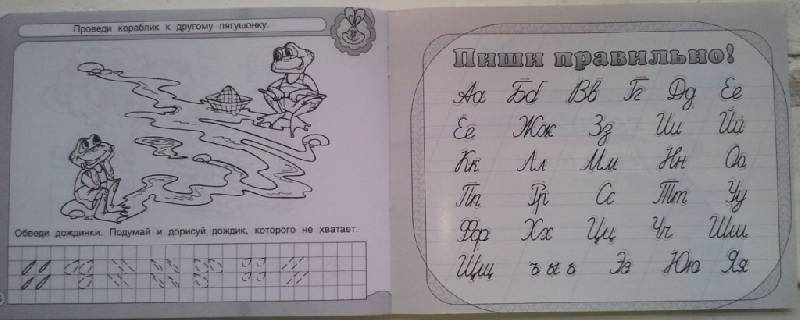 Проведи кораблик к другому лягушонку.
Обведи дождинки. Подумай и дорисуй дождик, которого не хватает.
Пиши правильно!
Аа Бб Вв Гг Дд Ее
Ёё Жж Зз Ии Йй
Кк Лл Мм Нн Оо
Пп Рр Сс Тт Уу
Фф Хх Цц Чч Шш
Щщ ъ ы ь Ээ Юю Яя